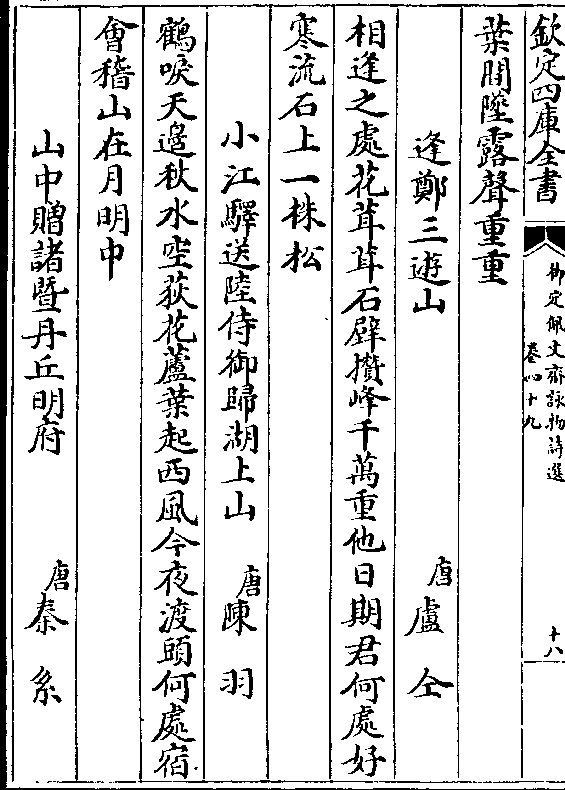 欽定四庫全書
御定佩文齋詠物詩選
卷四十九
十八
葉間墜露聲重重
逢鄭三遊山
唐盧仝
相逢之處花茸茸石壁攅峰千萬重他日期君何處好
寒流石上一株松
小江驛送陸侍御歸湖上山
唐陳羽
鶴唳天邉秋水空荻花蘆葉起西風今夜渡頭何處宿
會稽山在月明中
山中贈諸暨丹丘明府
唐秦系